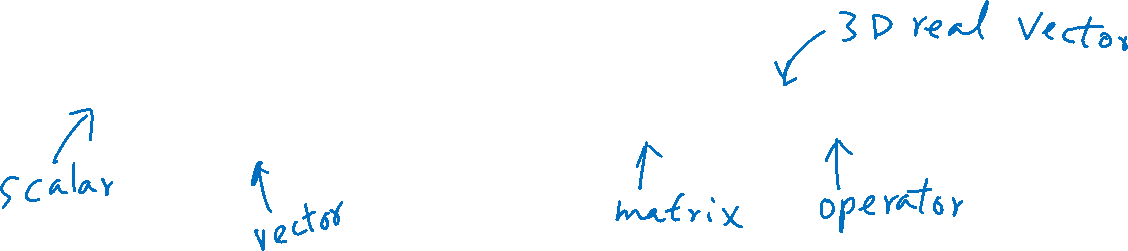 3D real vector
scalar
vector
matrix
operator